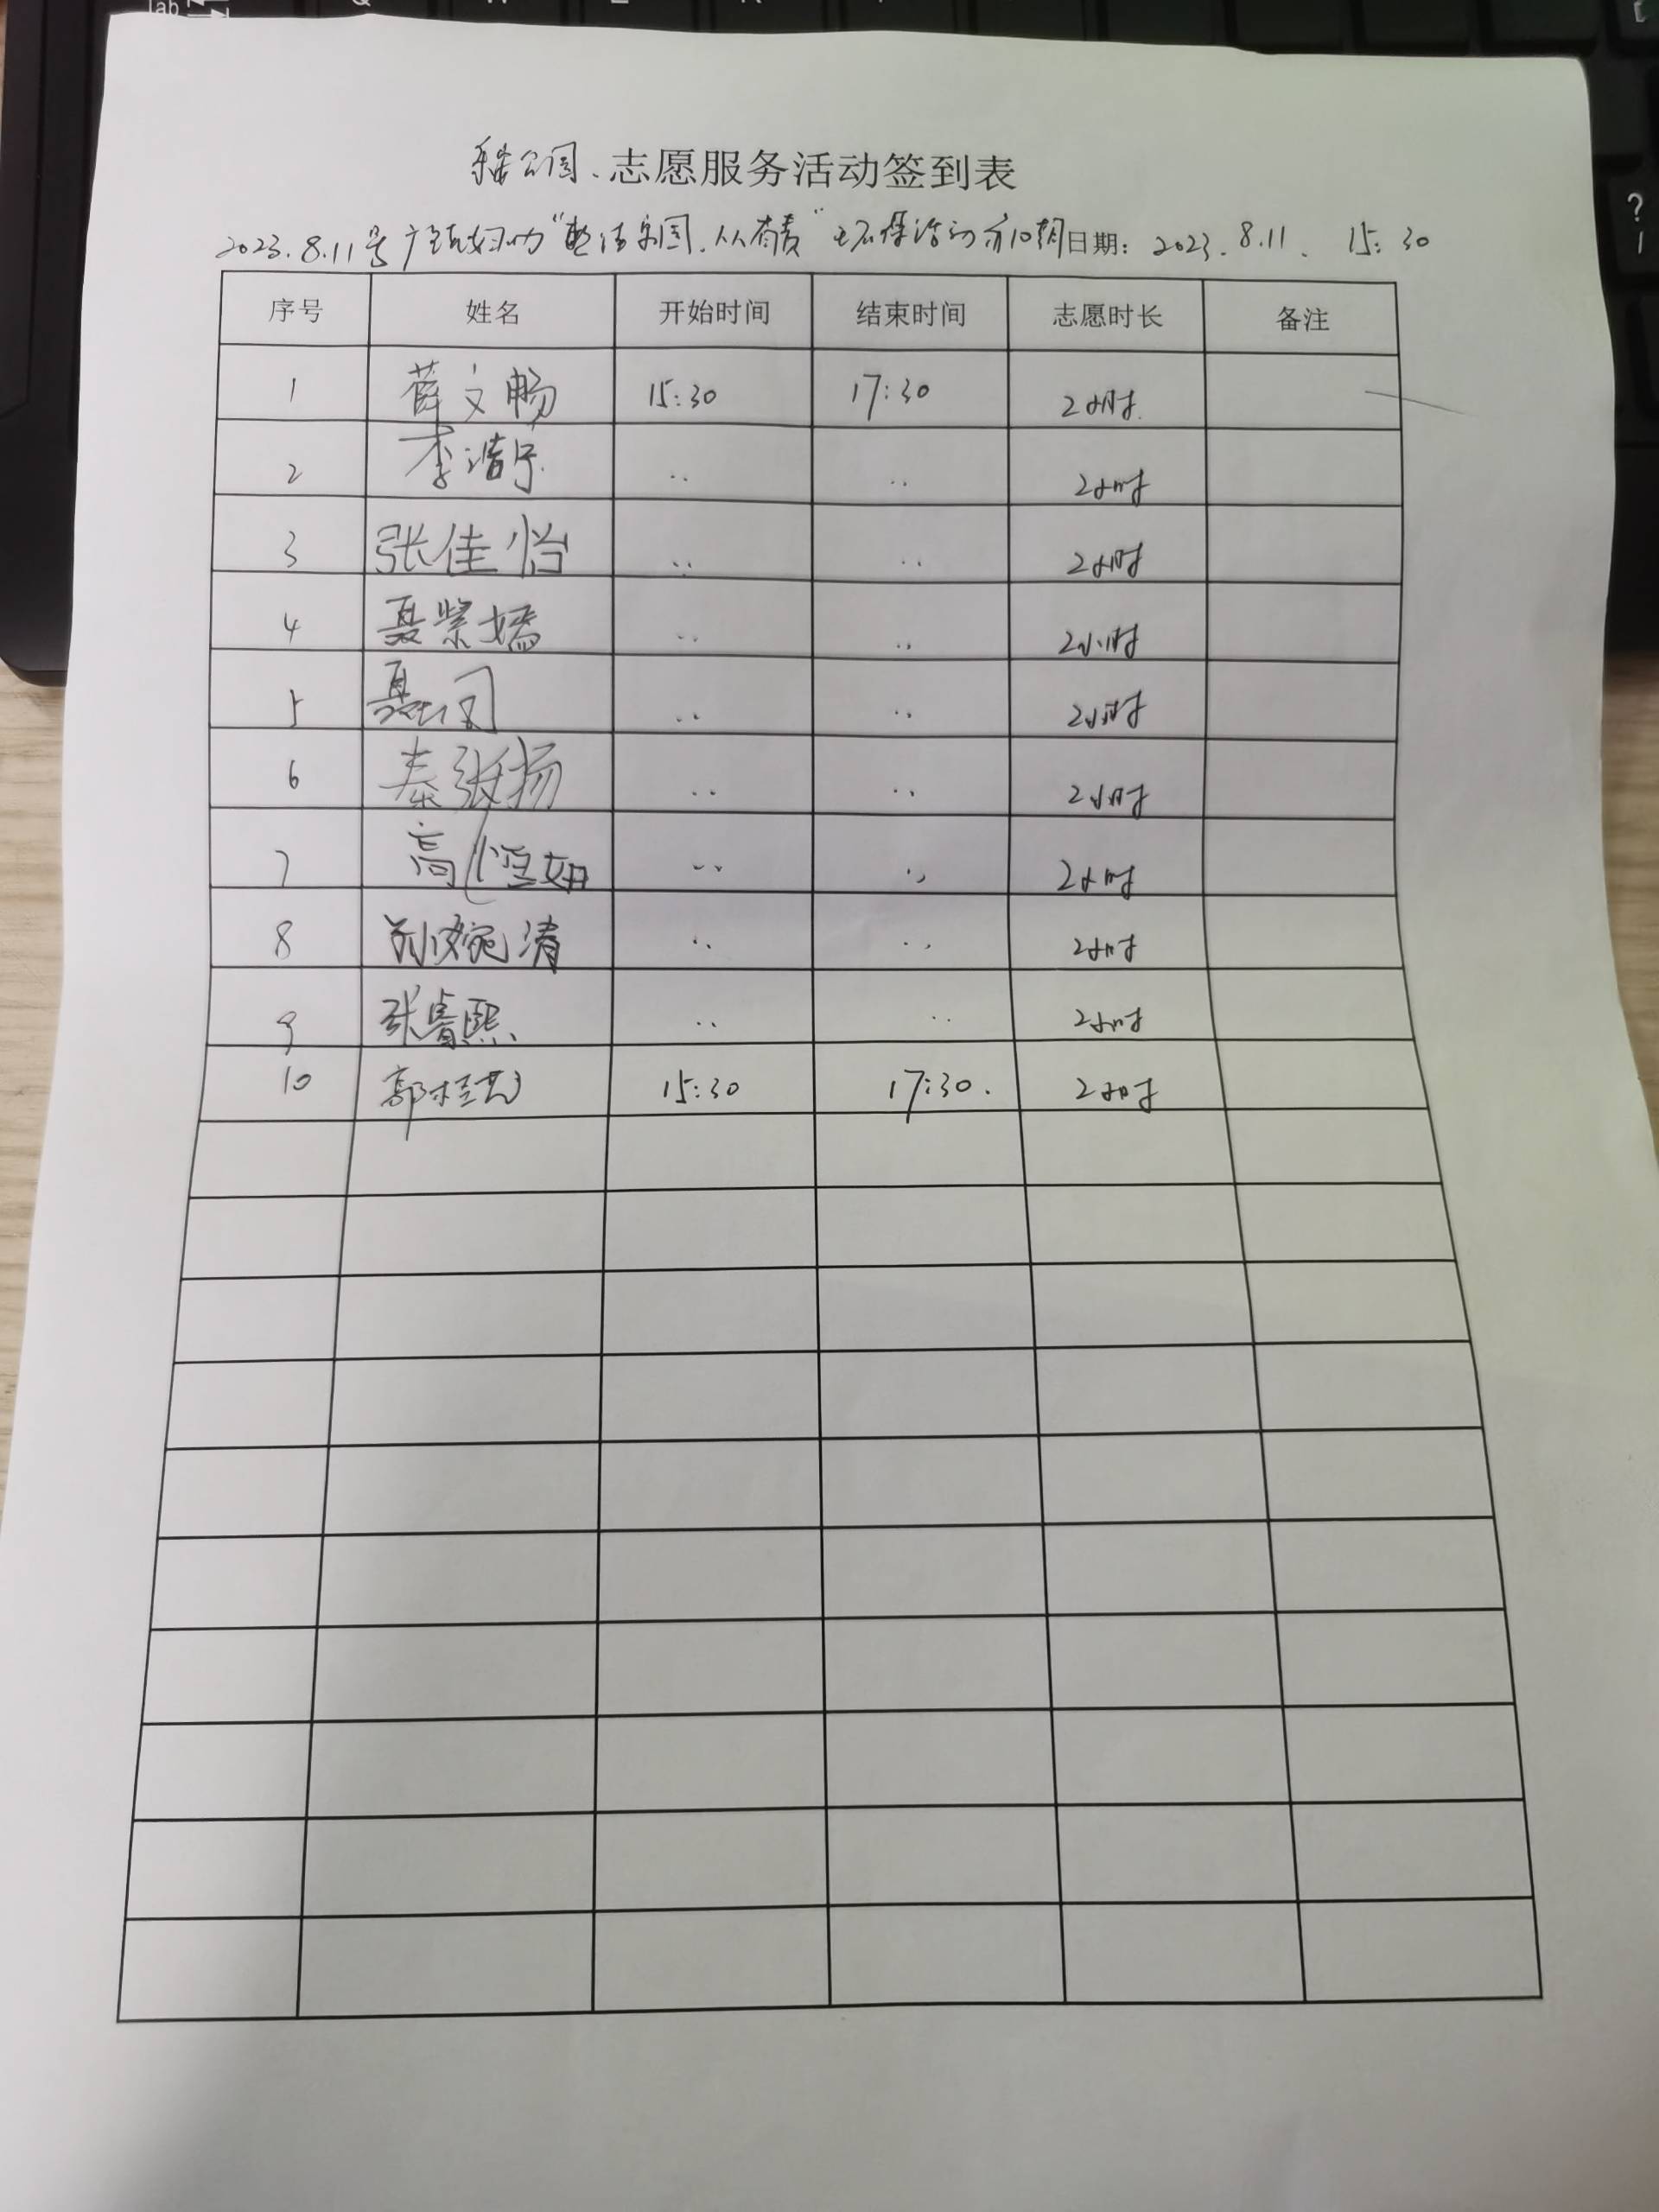 公园、志愿服务活动签到表
2023.8.11号 家园,人人有责" 环保活动第10期 日期: 2023.8.11. 15:30
序号 姓名 开始时间 结束时间 志愿时长 备注
1 薛文畅 15:30 17:30 2小时.
2 李浩宁 .. .. 2小时
3 张佳怡 .. .. 2小时
4 聂紫嫣 .. .. 2小时
5 聂 .. .. 2小时
6 秦张扬 .. .. 2小时
7 高 .. .. 2小时
8 婉清 .. .. 2小时
9 张睿熙 .. .. 2小时
10 郭桂 15:30 17:30. 2小时
tab
?